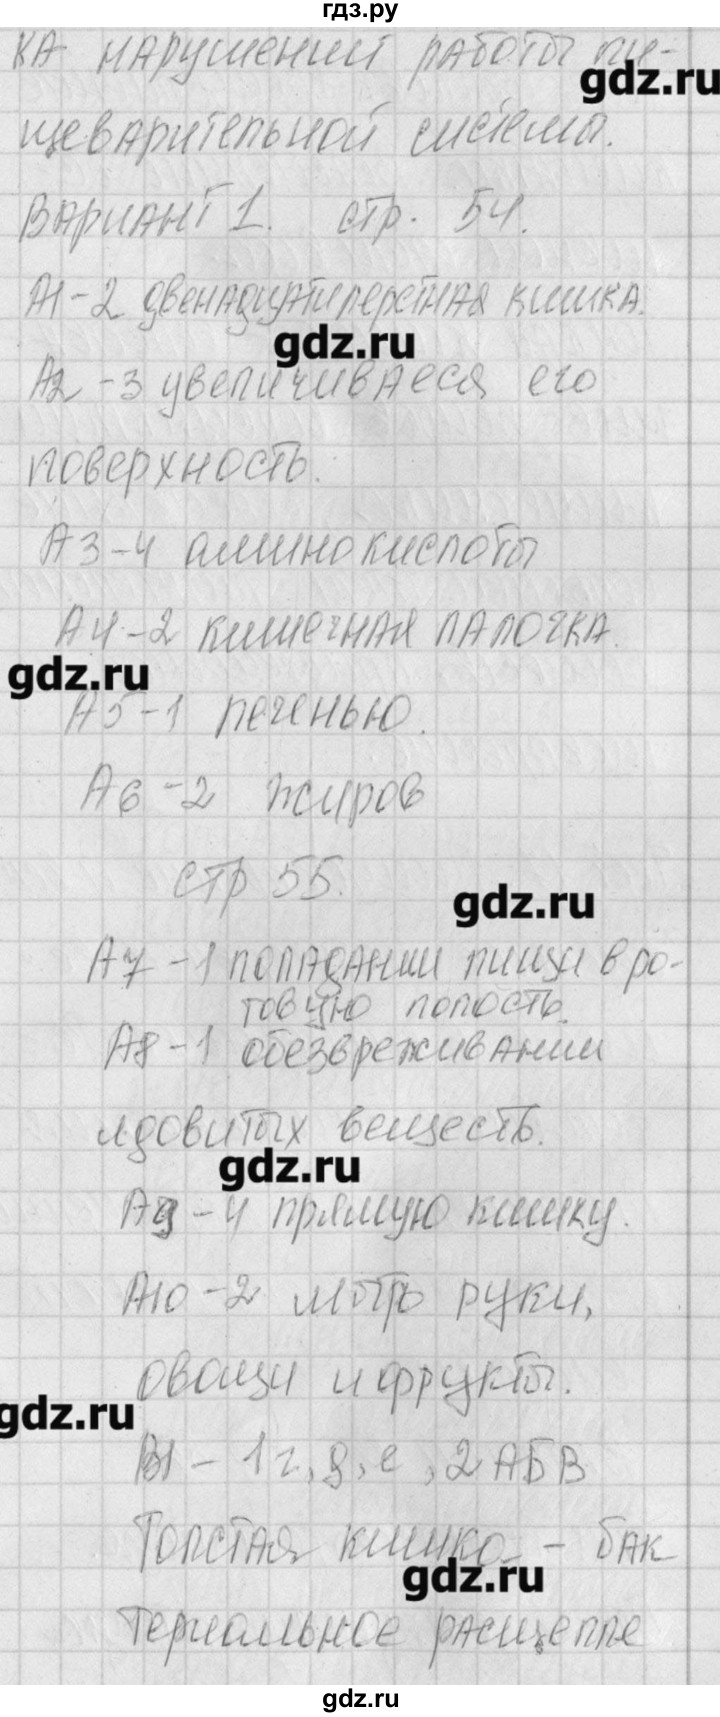 гдз.ру
КА нарушений работы пи-
gdz.ru
щеварительной системы.
Вариант 1. стр. 54.
А1-2 двенадцатиперстная кишка.
gdz.ru
А2-3 увеличиваеся его
поверхность.
А3-4 аминокислоты
А4-2 кишечная палочка.
gdz.ru
А5-1 печенью.
А6-2 жиров
стр 55.
gdz.ru
А7-1 попадании пищи в ро-
товую полость.
А8-1 обезвреживании
ядовитых веществ.
gdz.ru
А9-4 прямую кишку.
А10-2 мыть руки,
овощи и фрукты.
gdz.ru
В1 - 1 г, д, е, 2 АБВ
Толстая кишка - бак
gdz.ru
териальное расщепле
gdz.ru